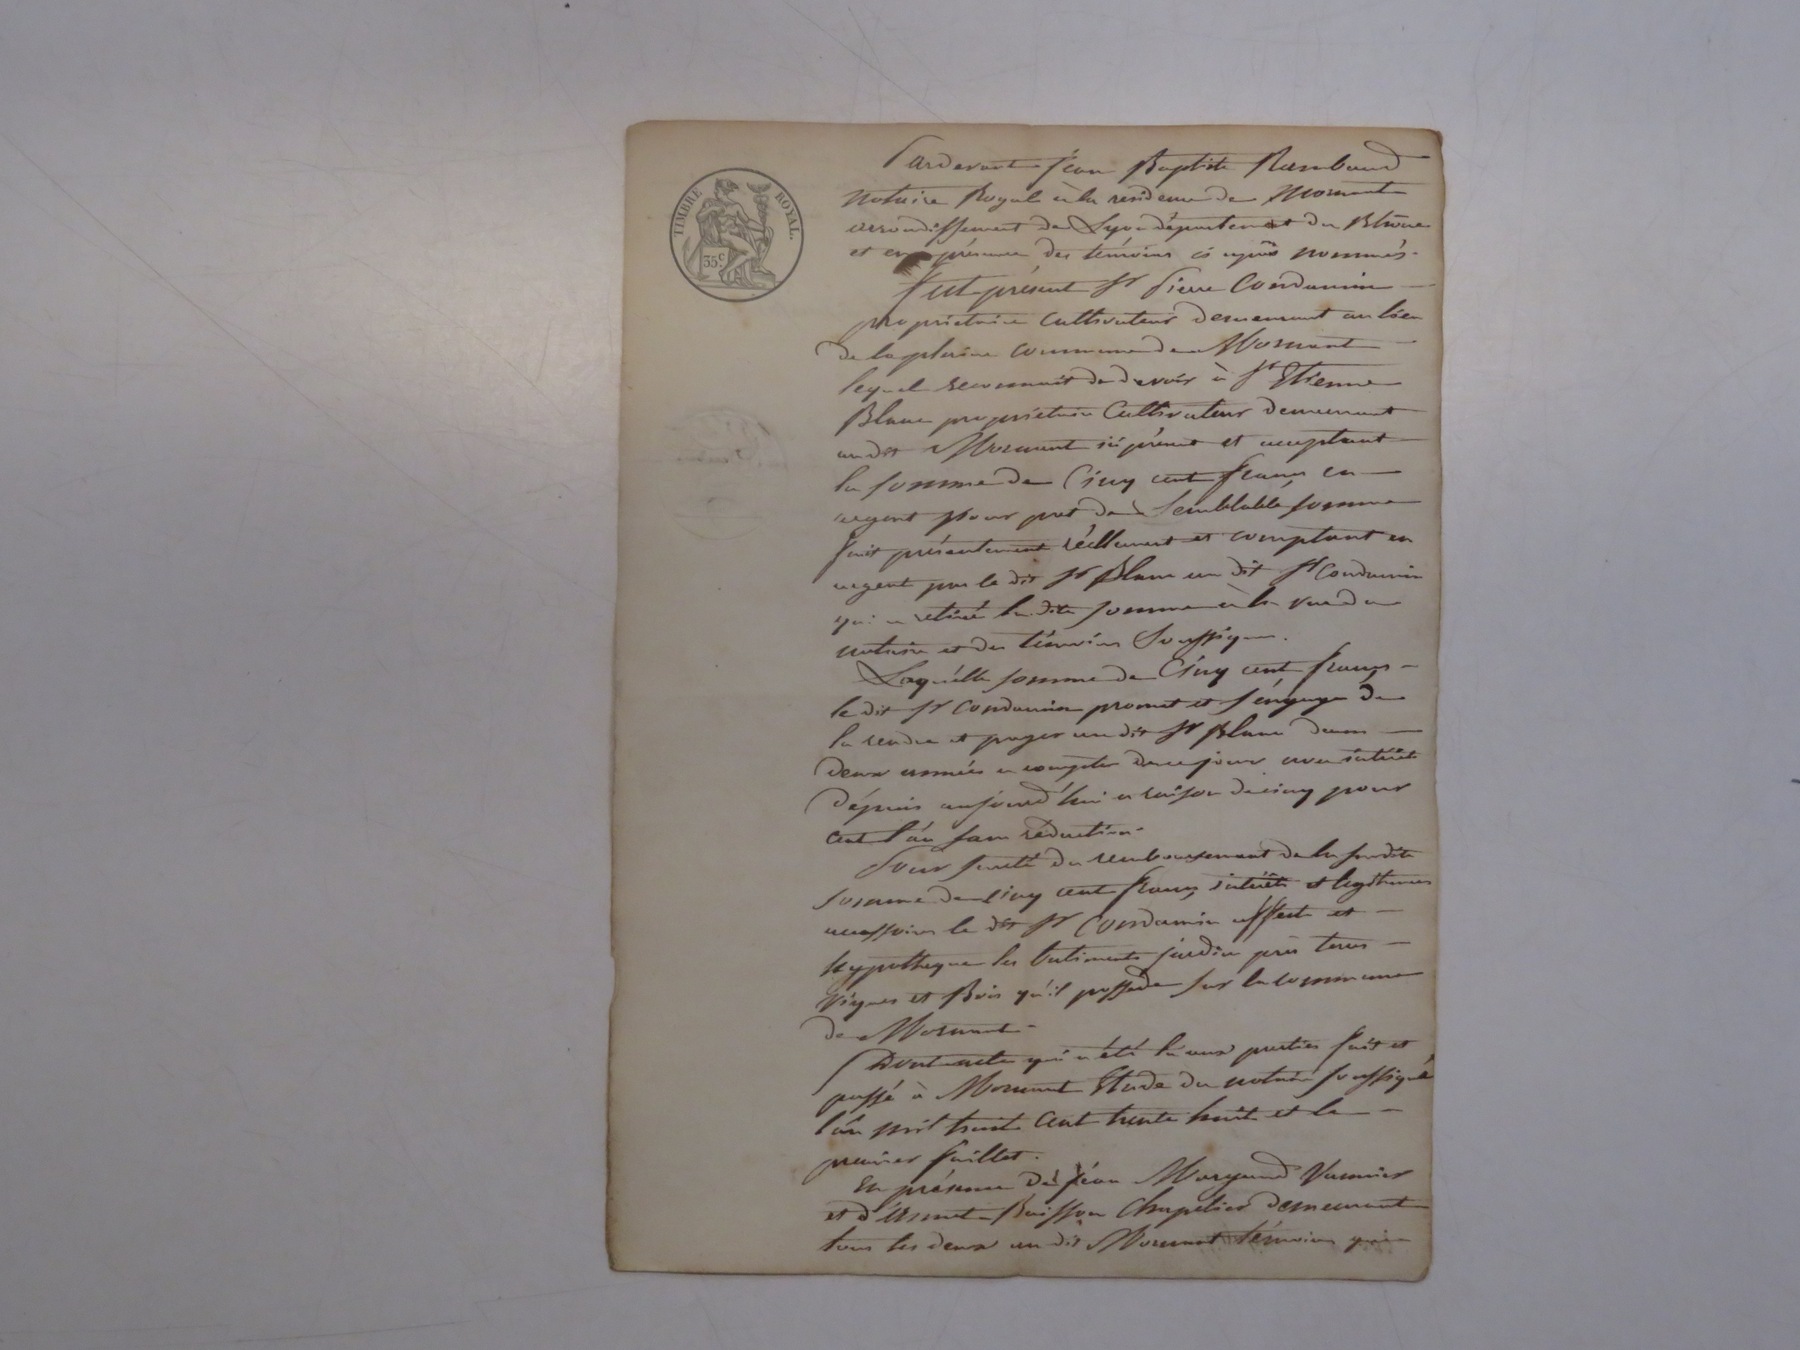 TIMBRE ROYAL.
35c
Pardevant Jean Baptiste Rambaud
Notaire Royal à la residence de Mornant
arrondissement de Lyon département du Rhône
et en présence des témoins ci après nommés.
Fut présent Sr Pierre Condamin
propriétaire cultivateur demeurant au lieu
de la plaine commune de Mornant
lequel reconnait de devoir à Sr Etienne
Blanc propriétaire Cultivateur demeurant
au dit Mornant ici présent et acceptant
la somme de Cinq cent francs en
argent pour pret de Semblable somme
fait présentement réellement et comptant en
argent par le dit Sr Blanc au dit Sr Condamin
qui a retiré la dite somme à la vue du
notaire et des témoins Soussignés.
Laquelle somme de Cinq cent francs
le dit Sr Condamin promet et s'engage de
la rendre et payer au dit Sr Blanc dans
deux années a compter de ce jour avec intérêts
dépuis aujourd'hui a raison de cinq pour
cent l'an sans réduction.
Pour sureté du remboursement de la susdite
somme de cinq cent francs intérêts et légitimes
accessoires le dit Sr Condamin affecte et
hypotheque les batiments jardin prés terres
Vignes et Bois qu'il possede sur la commune
de Mornant.
Dont acte qui a été lu aux parties fait et
passé à Mornant Etude du notaire soussigné
l'an mil huit cent trente huit et le
premier Juillet.
En présence de Jéan Margand Vannier
et d'Annet Buisson Chapelier demeurant
tous les deux au dit Mornant témoins qui